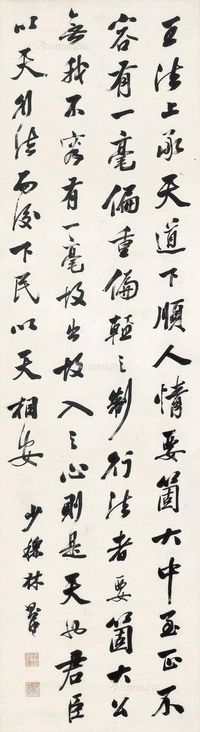 王法上承天道下順人情要箇大中至正不
容有一毫偏重偏輕之制行法者要箇大公
無我不容有一毫故出故入之心則是天也君臣
以天行法而後下民以天相安
少穆林